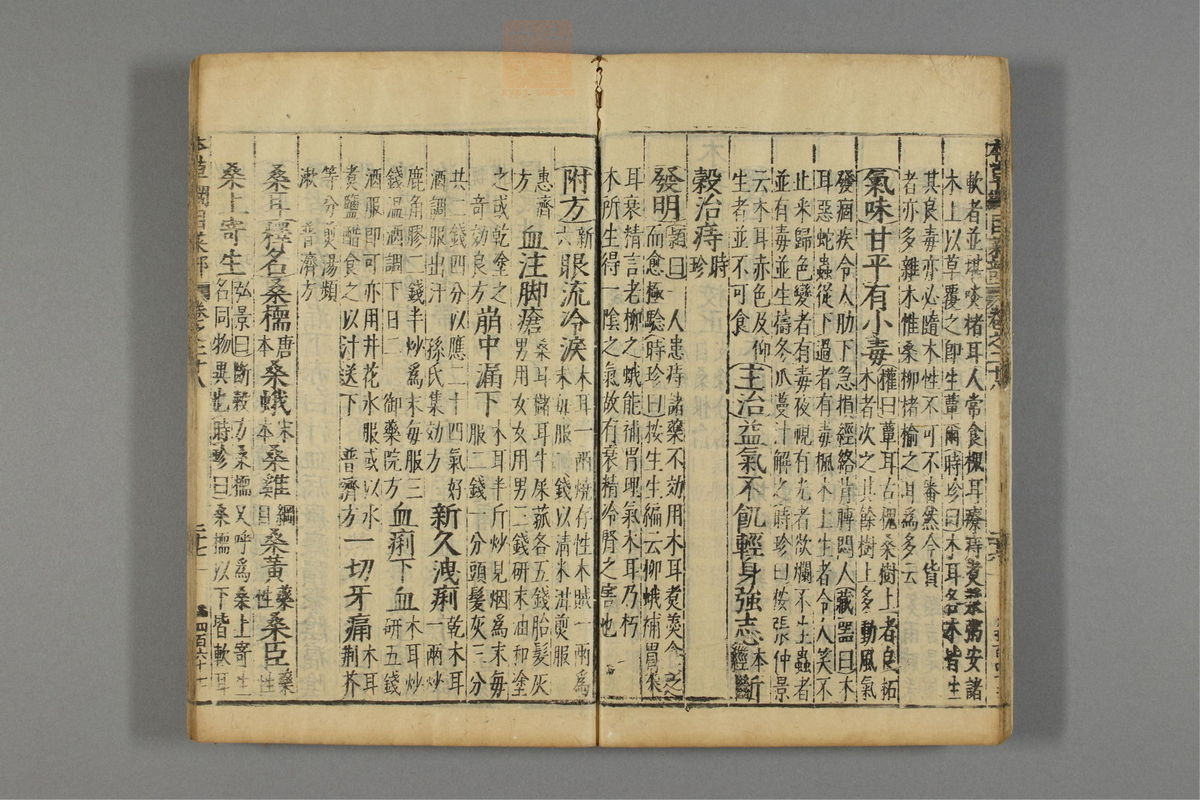 軟者並堪啖楮耳人常食槐耳療痔煮漿粥安諸
木上以草覆之即生蕈爾時珍曰木耳各木皆生
其良毒亦必隨木性不可不審然今貨
者亦多雜木惟桑柳楮榆之耳為多云
氣味甘平有小毒權曰蕈耳古槐桑樹上者良柘
木者次之其餘樹上多動風氣
發痼疾令人肋下急損經絡背膊悶人藏器曰木
耳惡蛇蟲從下過者有毒楓木上生者令人笑不
止采歸色變者有毒夜視有光者欲爛不生蟲者
並有毒並生擣冬瓜蔓汁解之時珍曰按張仲景
云木耳赤色及仰
生者並不可食主治益氣不飢輕身強志本經斷
穀治痔時珍
發明穎曰一人患痔諸藥不効用木耳煮羹食之
而愈極驗時珍曰按生生編云柳蛾補胃木
耳衰精言老柳之蛾能補胃理氣木耳乃朽
木所生得一陰之氣故有衰精冷腎之害也
附方新六眼流冷淚木耳一兩燒存性木賊一兩為
末每服二錢以清米泔煎服
惠濟方血注脚瘡桑耳楮耳牛屎菰各五錢胎髮灰
男用女女用男二錢研末油和塗
之或乾塗之奇効良方崩中漏下木耳半斤炒見烟為末每
服二錢一分頭髮灰三分
共二錢四分以應二十四氣好
酒調服出汗孫氏集効方新久洩痢乾木耳
一兩炒
鹿角膠二錢半炒為末每服三
錢溫酒調下日二御藥院方血痢下血木耳炒
研五錢
酒服即可亦用井花水服或以水
煮鹽醋食之以汁送下普濟方一切牙痛木耳
荊芥
等分煎湯頻
漱普濟方
桑耳釋名桑檽唐本桑蛾宋本桑雞綱目桑黃藥性桑臣藥性
桑上寄生弘景曰斷穀方桑檽又呼為桑上寄生
名同物異也時珍曰桑檽以下皆軟耳
本草綱目菜部
卷之二十八
二十七